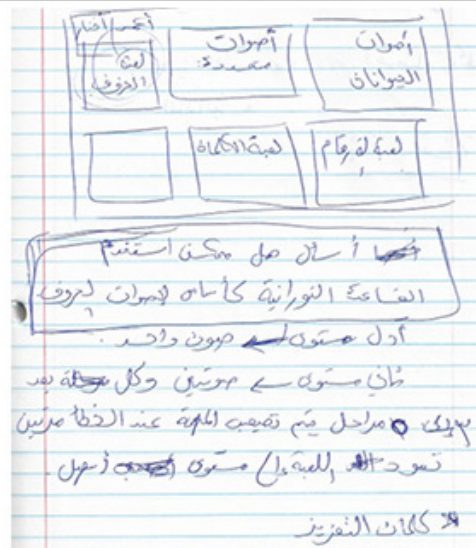 أصوات الحيوانات
أصوات محددة:
لعبة الحروف
لعبة لأرقام
لعبة الكلمات
أسأل هل ممكن استخدم
القاعدة النورانية كأساس لأصوات لحروف
أول مستوى ← صوت واحد.
ثاني مستوى ← صوتين وكل بعد
مراحل يتم تصعيب المهمة عند الخطأ مرتين
تعود اللعبة إلى مستوى أسهل.
* كلمات التعزيز